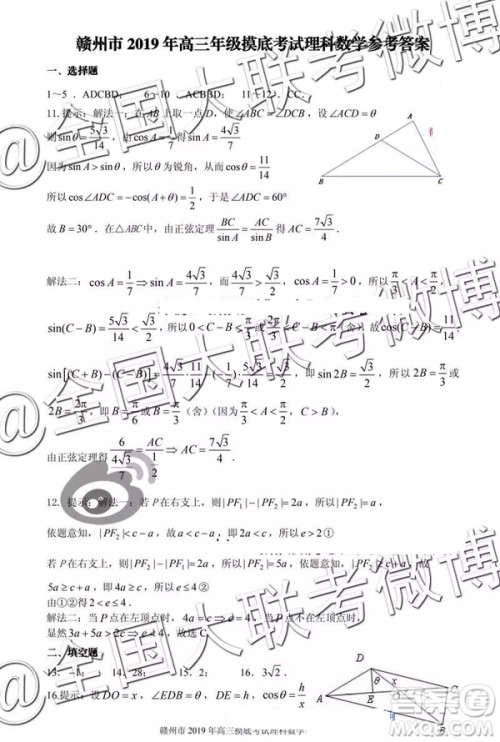 赣州市 2019 年高三年级摸底考试理科数学参考答案
一、选择题
1～5 . ADCBD; 6～10 . ACBBD; 11～12 . CC.
11.提示：解法一：在 AB 上取一点 D，使∠ABC=∠DCB，设∠ACD=θ
则 sin θ = 5√3/14，由 cos A = 1/7 得 sin A = 4√3/7
因为 sin A > sin θ，所以 θ 为锐角，从而 cos θ = 11/14
所以 cos∠ADC = −cos(A+θ) = 1/2，于是∠ADC=60°
故 B=30°．在△ABC 中，由正弦定理 BC/sin A = AC/sin B 得 AC = 7√3/4 .
A
D
B
C
解法二：cos A = 1/7 ⇒ sin A = 4√3/7，而 4√3/7 > √3/2，cos A = 1/7 > 0，所以 π/3 < A < π/2 .
sin(C−B) = 5√3/14 < √3/2，所以 0 < C−B < π/3 或 2π/3 （舍）故 cos(C−B) = 11/14
sin[(C+B)−(C−B)] = 4√3/7 · 11/14 即 sin 2B = √3/2，所以 2B = π/3 或
2B = 2π/3，即 B = π/6 或 π/3（舍）（因为 π/3 < A < π/2，C > B），
由正弦定理得 6/(4√3/7) = AC/(1/2) ⇒ AC = 7√3/4 .
12. 提示：解法一：若 P 在右支上，则 |PF₁|−|PF₂|=2a，所以 |PF₂|=a，
依题意知，|PF₂|<c−a，故 a>c−a，即 2a>c，所以 e>2①
若 P 在左支上，则 |PF₂|−|PF₁|=2a，所以 |PF₂|=5a，故
5a≥c+a，即 4a≥c，所以 e≤4②
由①②得 2<e≤4 .
解法二：当 P 点在左顶点时，4a=c⇒e=4，当 P 点不在左顶点时，
显然 3a+5a>2c⇒e<4，故选 C.
二、填空题
14. 28; 15. 2; 16. 3√2 .
16.提示，设 DO=x，∠EDB=θ，DE=h，cos θ = h/x
D
θ
x
A
B
赣州市 2019 年高三摸底考试理科数学
@全国大联考微博
@全国大联考微博
@全国大联考微博